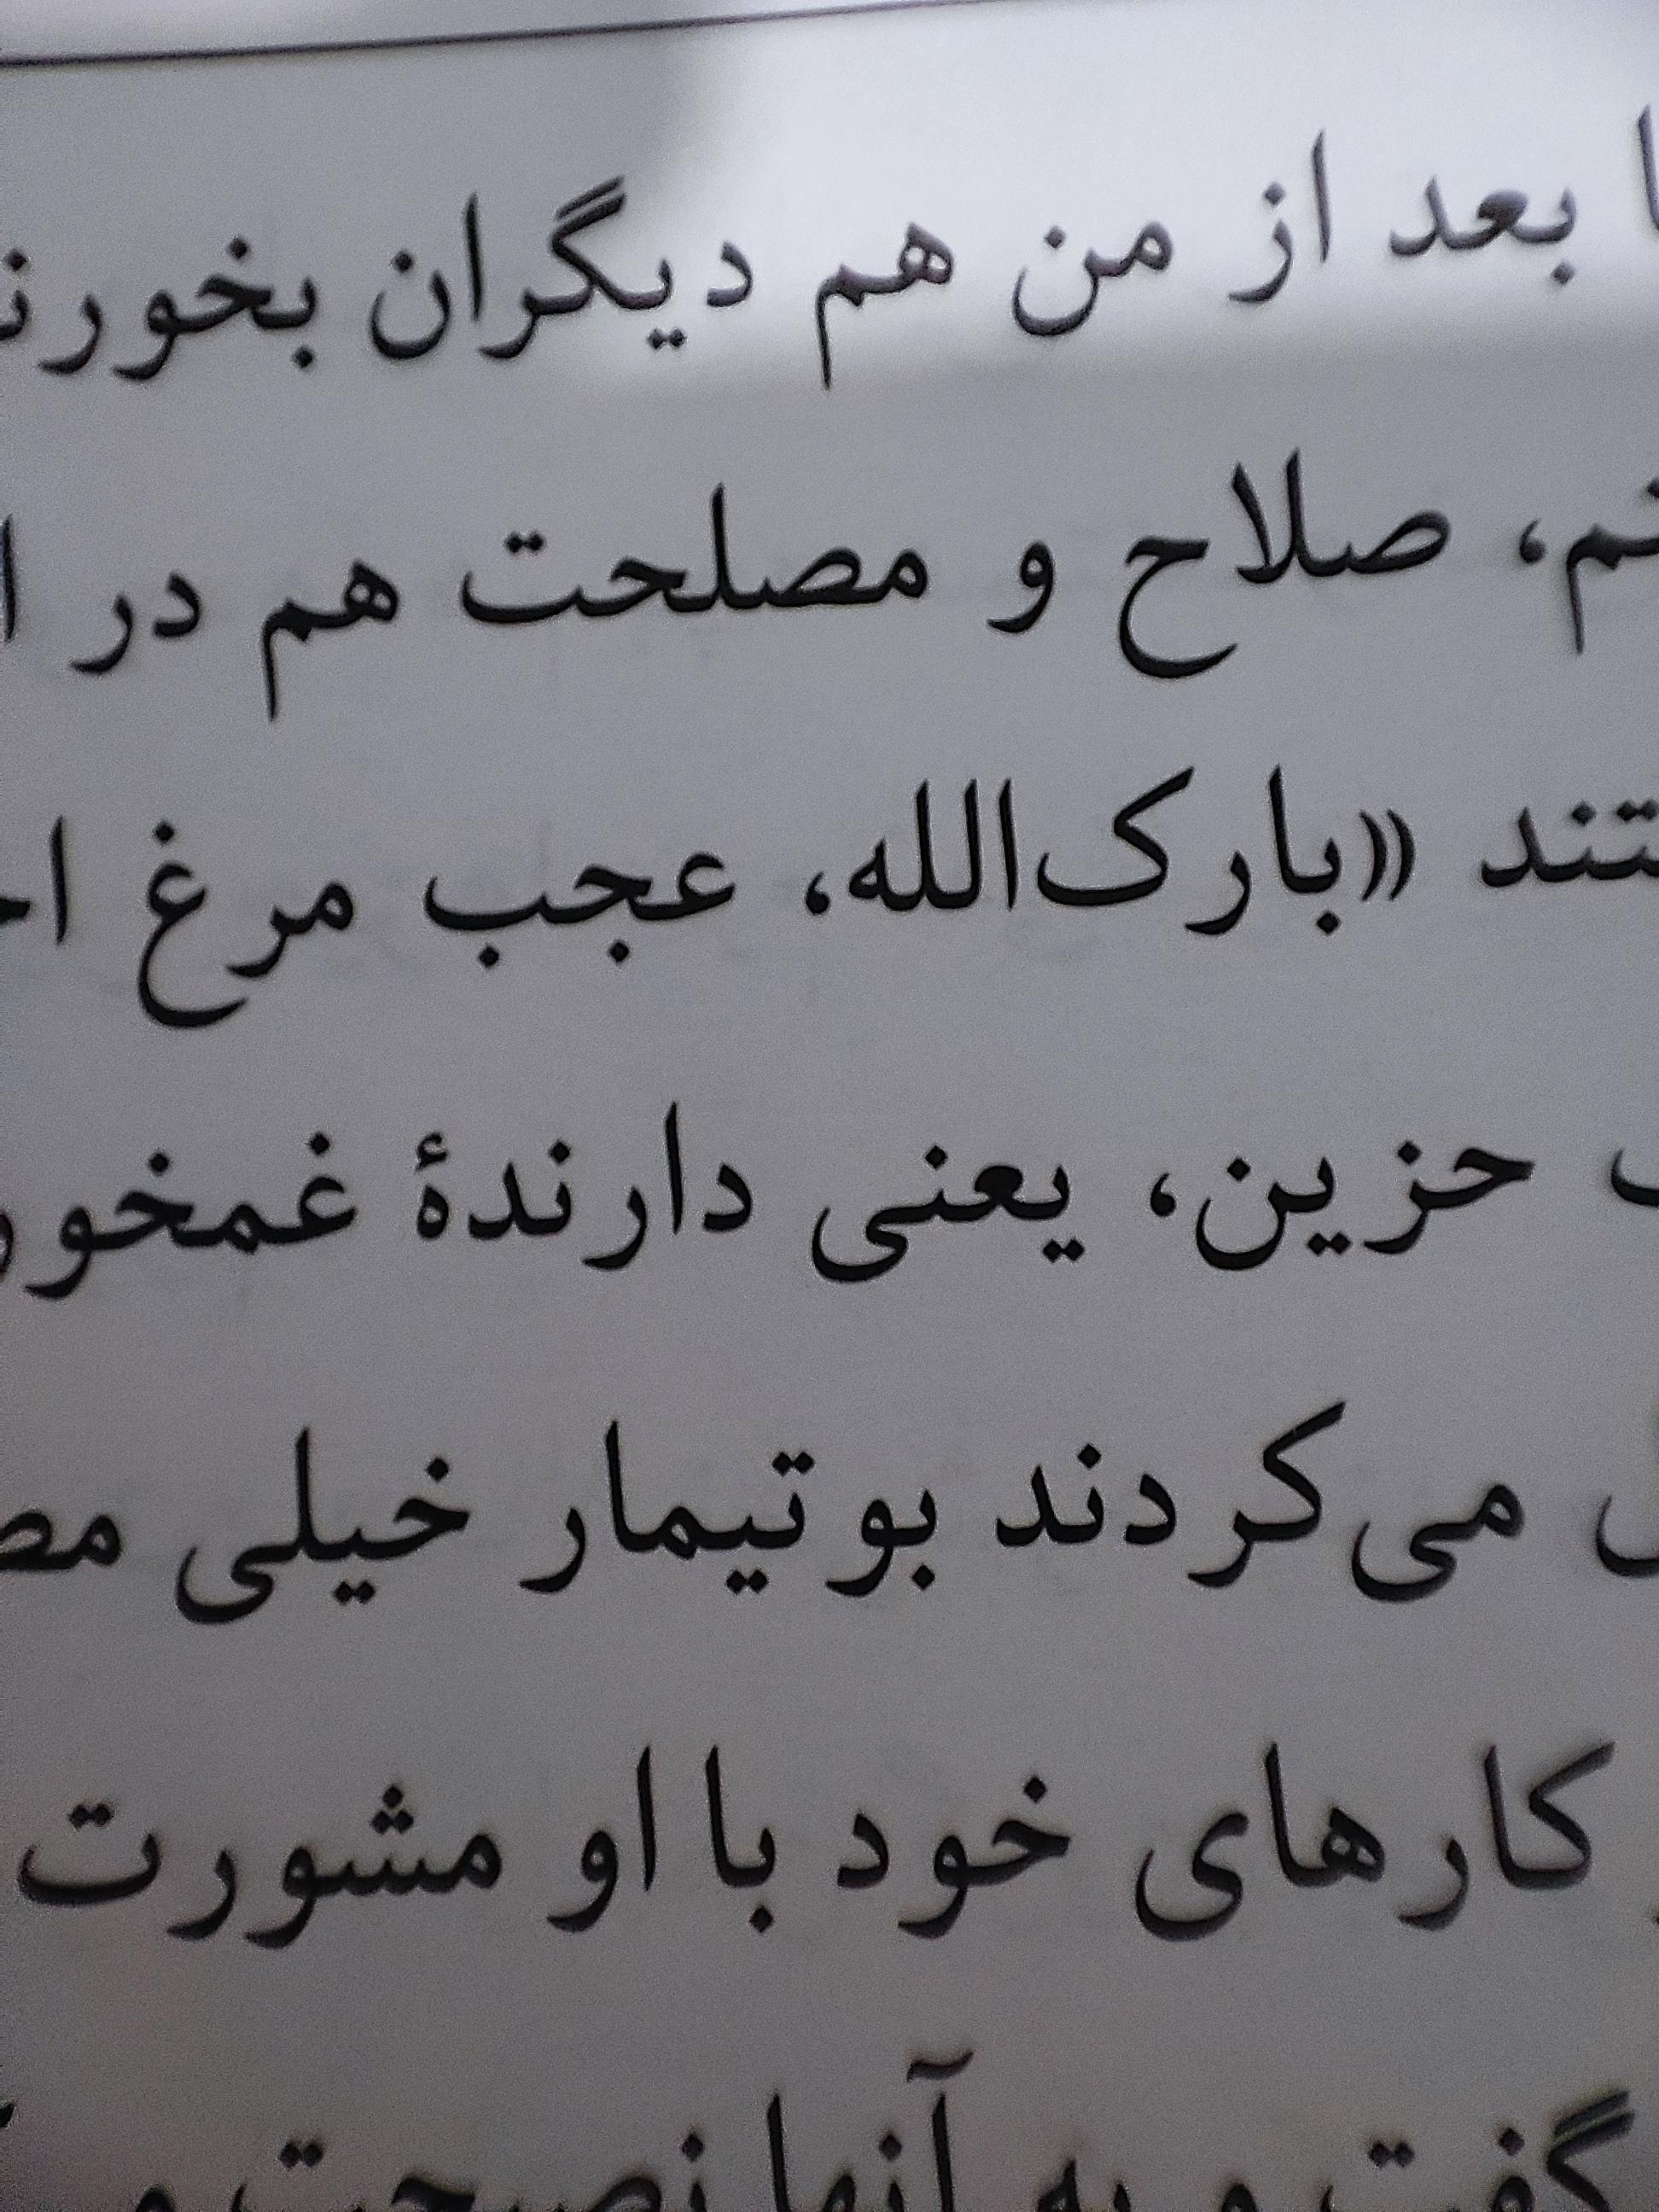 بعد از من هم دیگران
صلاح و مصلحت هم در
«بارک‌الله، عجب مرغ
حزین، یعنی دارندهٔ
می‌کردند بوتیمار خیلی
کارهای خود با او مشورت
گفت و به آنها نصیحت